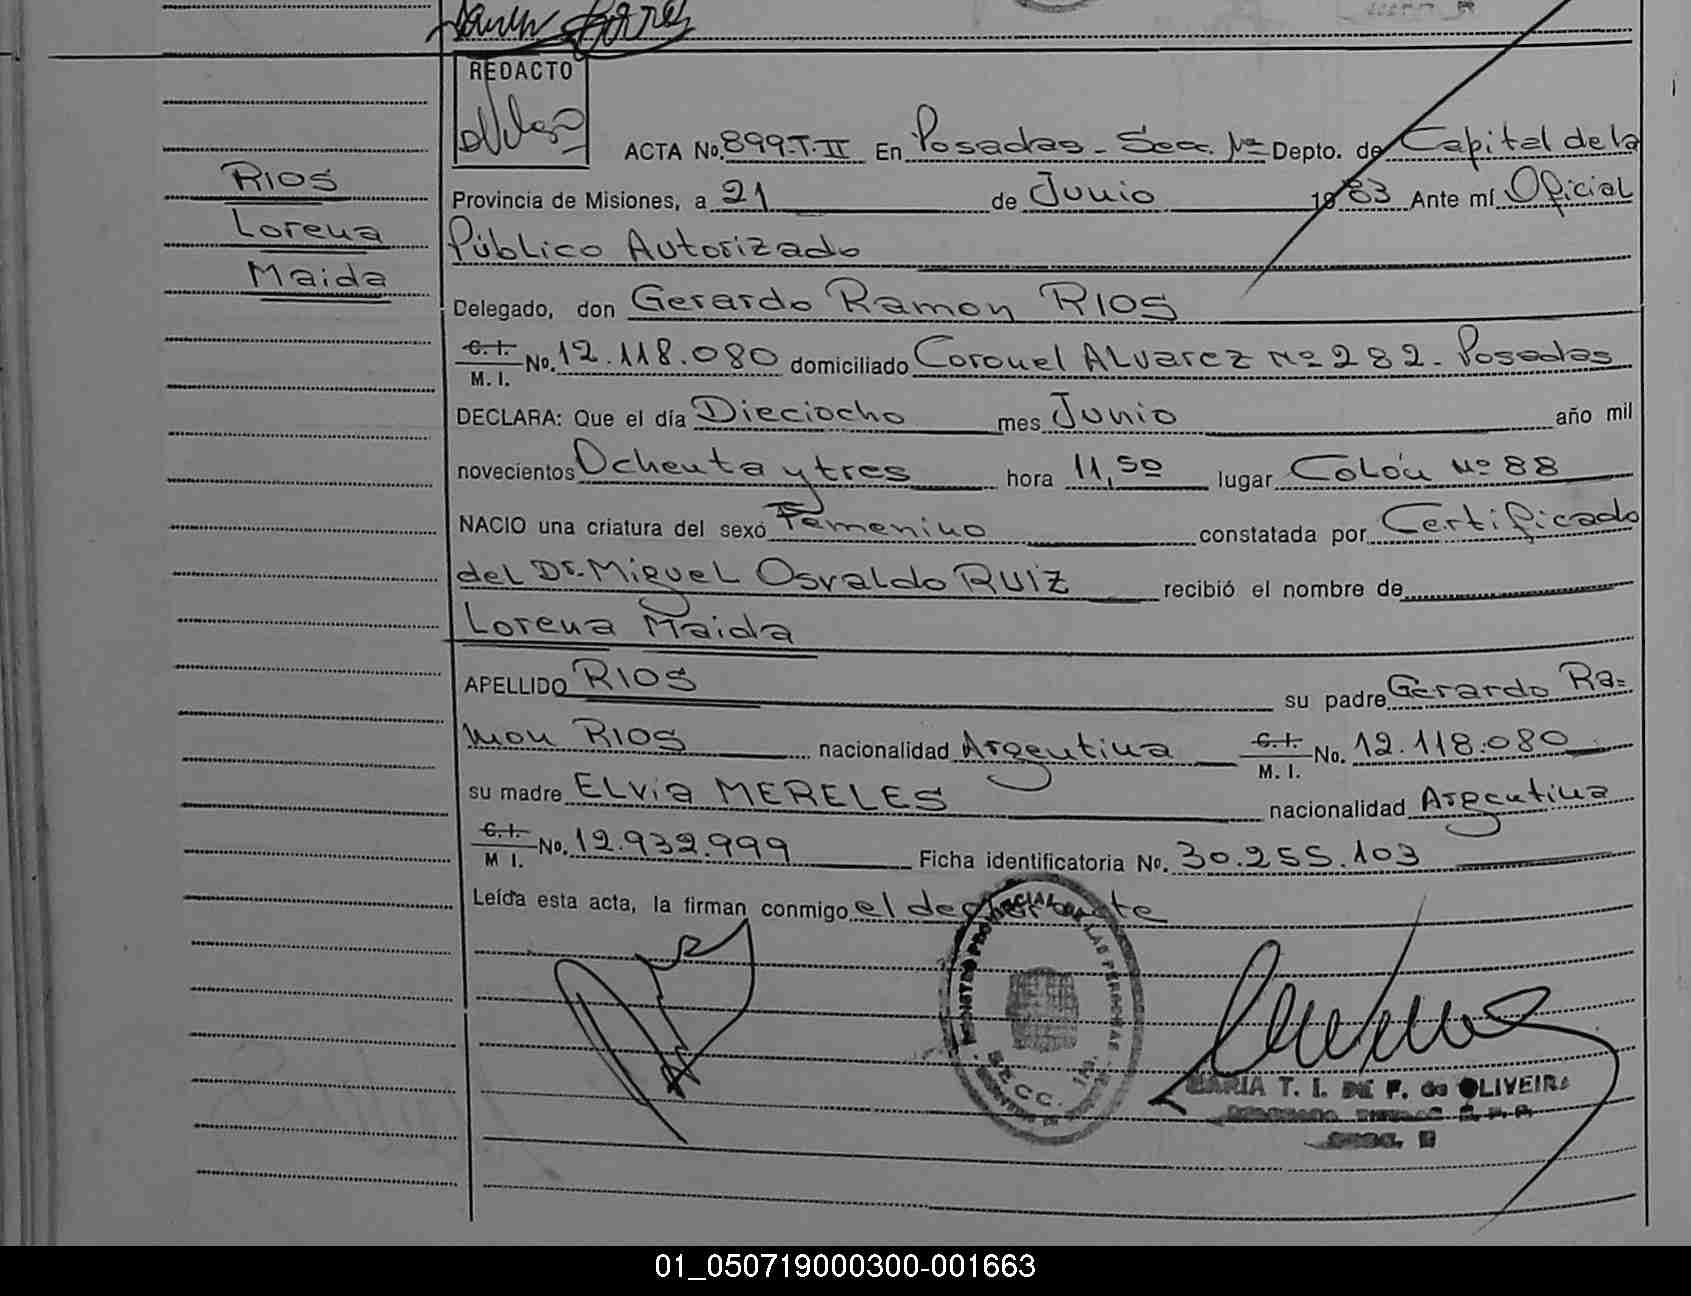 REDACTO
ACTA No. 899-T-II En Posadas - Secc. 1ª Depto. de Capital de la
RIOS
Lorena
Maida
Provincia de Misiones, a 21 de Junio 1983 Ante mí Oficial
Público Autorizado
Delegado, don Gerardo Ramon RIOS
C. I.
M. I. No. 12.118.080 domiciliado Coronel Alvarez Nº 282 - Posadas
DECLARA: Que el día Dieciocho mes Junio año mil
novecientos Ochenta y tres hora 11,50 lugar Colón Nº 88
NACIO una criatura del sexo Femenino constatada por Certificado
del Dr. Miguel Osvaldo RUIZ recibió el nombre de
Lorena Maida
APELLIDO RIOS su padre Gerardo Ra=
mon RIOS nacionalidad Argentina C. I. M. I. No. 12.118.080
su madre ELvia MERELES nacionalidad Argentina
C. I. M I. No. 12.932.999 Ficha identificatoria No. 30.255.103
Leída esta acta, la firman conmigo el declarante
REGISTRO PROVINCIAL DE LAS PERSONAS
SECC. 1ra.
MARIA T. I. DE F. de OLIVEIRA
01_050719000300-001663